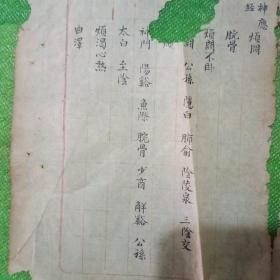 神應經
煩悶
腕骨
煩悶不卧
公孫 隱白 肺俞 陰陵泉 三陰交
神門 陽谿 魚際 腕骨 少商 解谿 公孫
太白 至陰
煩渴心熱
曲澤